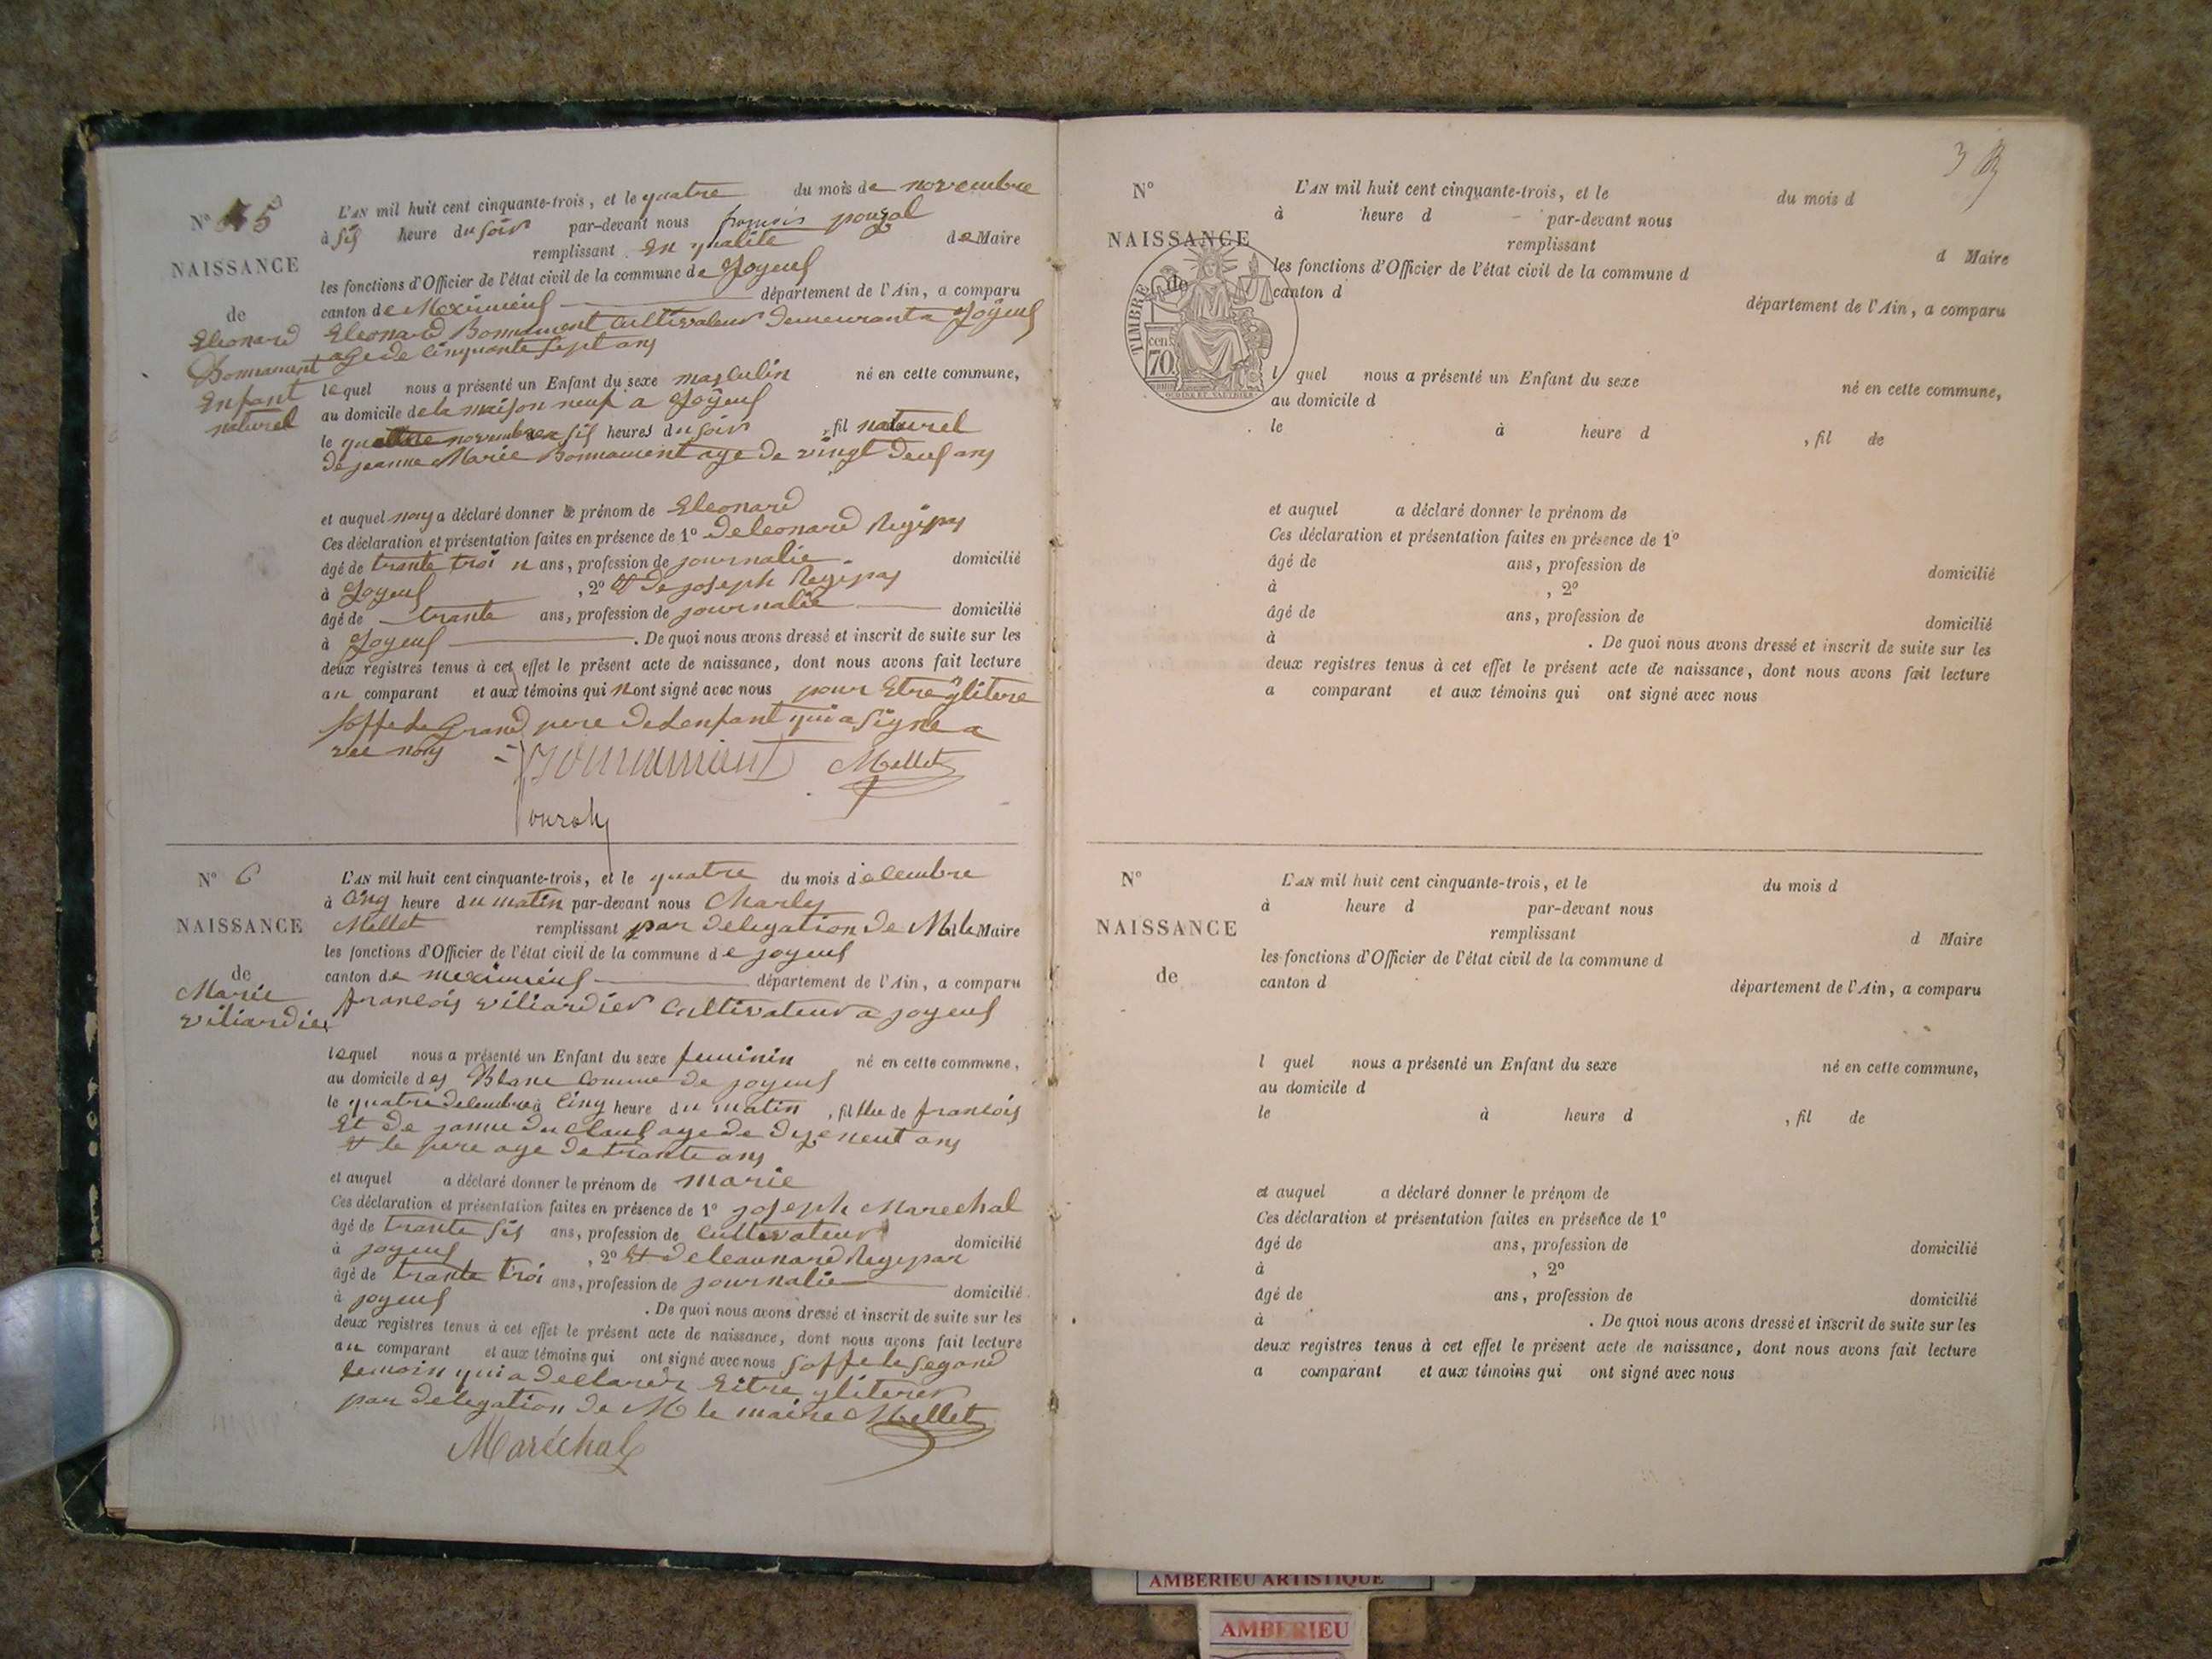 N° 5
NAISSANCE
de
Eleonard
Bonnamant
Enfant
naturel
L'AN mil huit cent cinquante-trois, et le quatre du mois de novembre
à sis heure du soir par-devant nous francois
remplissant En qualite de Maire
les fonctions d'Officier de l'état civil de la commune de Joyeus
canton de Meximieus département de l'Ain, a comparu
Eleonard Bonnamant Cultivateur Demeurant a Joyeus
age de Cinquante sept ans
lequel nous a présenté un Enfant du sexe masculin né en cette commune,
au domicile de la maison neuf a Joyeus
le quattre novembre a sis heures du soir , fil naturel
de jeanne Marie Bonnament age de vingt deus ans
et auquel nous a déclaré donner le prénom de Eleonard
Ces déclaration et présentation faites en présence de 1° Deleonard Regipas
âgé de trante troi ans, profession de journalie domicilié
à Joyeus , 2° Et De joseph Regipas
âgé de trante ans, profession de journalie domicilié
à Joyeus . De quoi nous avons dressé et inscrit de suite sur les
deux registres tenus à cet effet le présent acte de naissance, dont nous avons fait lecture
au comparant et aux témoins qui n'ont signé avec nous pour Etre ylitere
soffe le Grand pere De Lenfant qui a signe a
vec nous
Bonnamant Mellet
N° 6
NAISSANCE
de
Marie
viliardier
L'AN mil huit cent cinquante-trois, et le quatre du mois decembre
à Cinq heure du matin par-devant nous Charles
Mellet remplissant par delegation de M le Maire
les fonctions d'Officier de l'état civil de la commune de joyeus
canton de meximieus département de l'Ain, a comparu
francois viliardier Cultivateur a joyeus
lequel nous a présenté un Enfant du sexe feminin né en cette commune,
au domicile des Blanc Comune de joyeus
le quatre decembre à Cinq heure du matin , fillle de francois
Et De janne du Claus age de Dize neuf ans
Et le pere age de trante ans
et auquel a déclaré donner le prénom de marie
Ces déclaration et présentation faites en présence de 1° joseph Marechal
âgé de trante sis ans, profession de Cultivateur domicilié
à joyeus , 2° Et de leaunard Regipas
âgé de trante troi ans, profession de journalie domicilié
à joyeus . De quoi nous avons dressé et inscrit de suite sur les
deux registres tenus à cet effet le présent acte de naissance, dont nous avons fait lecture
au comparant et aux témoins qui ont signé avec nous soffe le segond
temoin qui a declarer Eitre yliterer
par delegation de M le maire Mellet
Maréchal
3
N°
NAISSANCE
de
TIMBRE
cen.
70
L'AN mil huit cent cinquante-trois, et le du mois d
à heure d par-devant nous
remplissant d Maire
les fonctions d'Officier de l'état civil de la commune d
canton d département de l'Ain, a comparu
l quel nous a présenté un Enfant du sexe né en cette commune,
au domicile d
le à heure d , fil de
et auquel a déclaré donner le prénom de
Ces déclaration et présentation faites en présence de 1°
âgé de ans, profession de domicilié
à , 2°
âgé de ans, profession de domicilié
à . De quoi nous avons dressé et inscrit de suite sur les
deux registres tenus à cet effet le présent acte de naissance, dont nous avons fait lecture
a comparant et aux témoins qui ont signé avec nous
N°
NAISSANCE
de
L'AN mil huit cent cinquante-trois, et le du mois d
à heure d par-devant nous
remplissant d Maire
les fonctions d'Officier de l'état civil de la commune d
canton d département de l'Ain, a comparu
l quel nous a présenté un Enfant du sexe né en cette commune,
au domicile d
le à heure d , fil de
et auquel a déclaré donner le prénom de
Ces déclaration et présentation faites en présence de 1°
âgé de ans, profession de domicilié
à , 2°
âgé de ans, profession de domicilié
à . De quoi nous avons dressé et inscrit de suite sur les
deux registres tenus à cet effet le présent acte de naissance, dont nous avons fait lecture
a comparant et aux témoins qui ont signé avec nous
AMBERIEU ARTISTIQUE
AMBERIEU